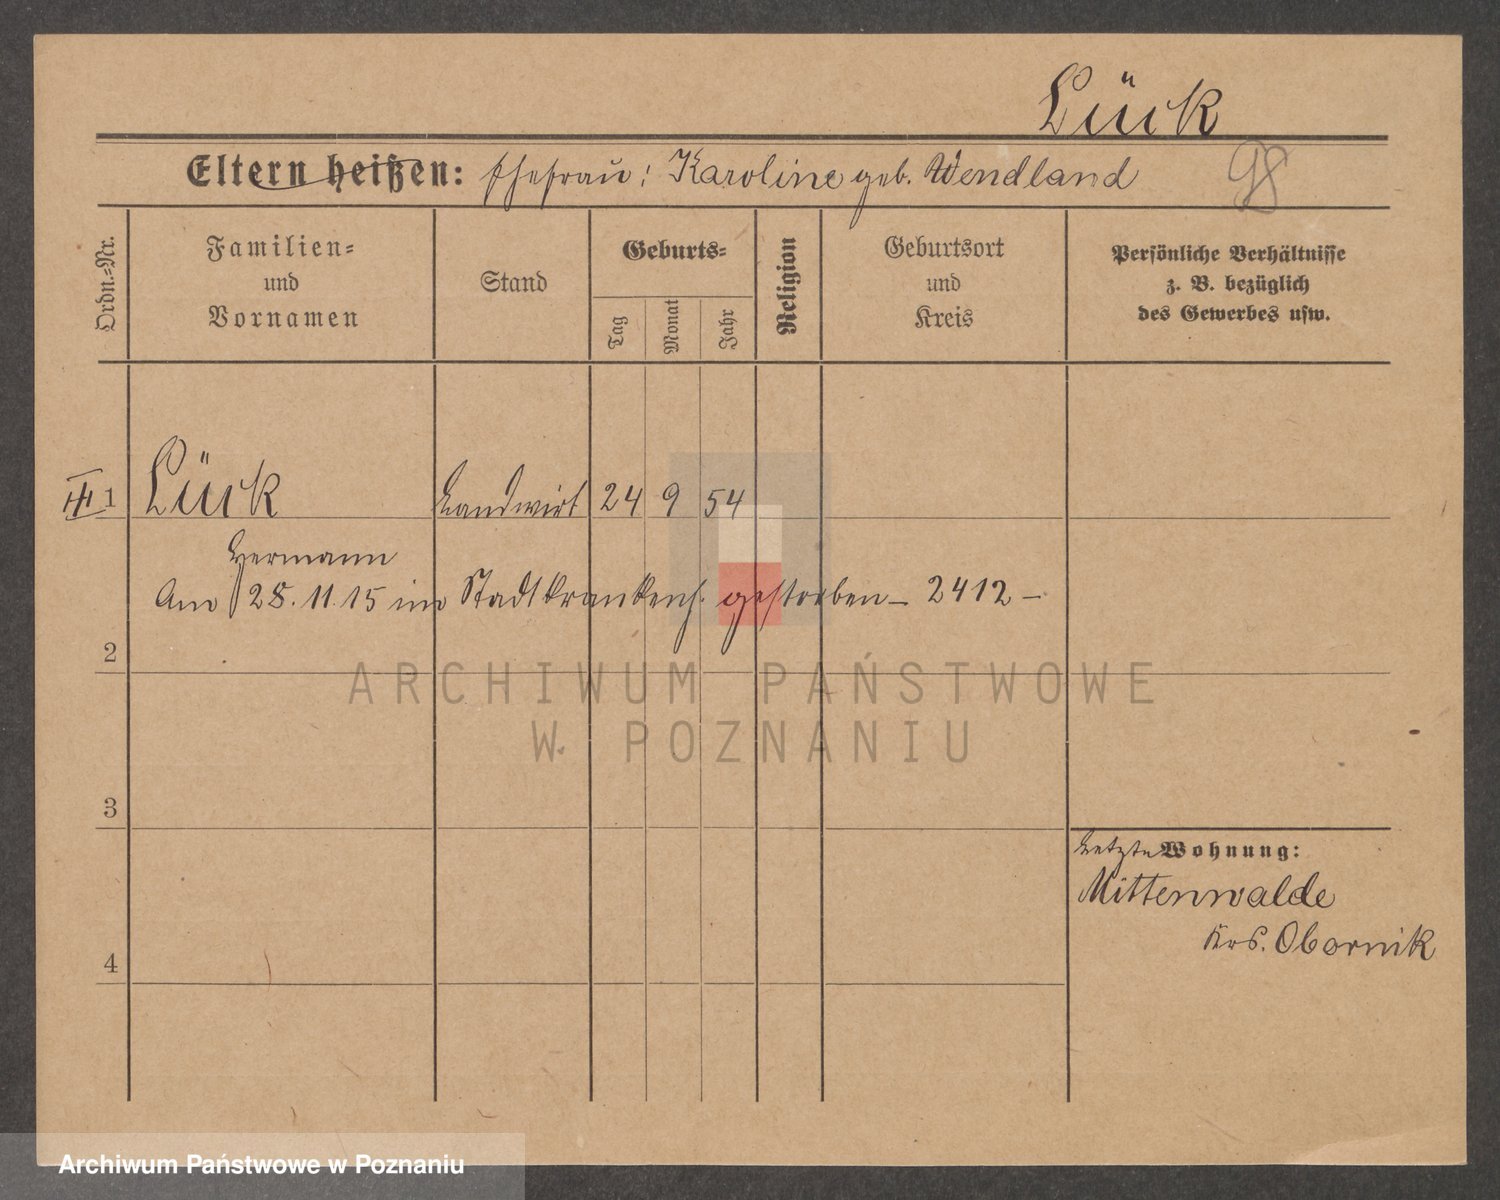 Lück
Eltern heißen: Ehefrau: Karoline geb. Wendland
98
Ordn.-Nr.
Familien-
und
Vornamen
Stand
Geburts-
Tag
Monat
Jahr
Religion
Geburtsort
und
Kreis
Persönliche Verhältnisse
z. B. bezüglich
des Gewerbes usw.
1 Lück Landwirt 24 9 54
Hermann
Am 28. 11. 15 im Stadtkrankenh. gestorben – 2412 –
2
ARCHIWUM PAŃSTWOWE
W POZNANIU
3
Letzte Wohnung:
Mittenwalde
Krs. Obornik
4
Archiwum Państwowe w Poznaniu